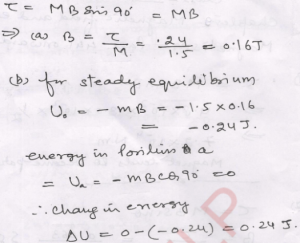 τ = MB sin 90° = MB
⇒ (a) B = τ/M = .24/1.5 = 0.16 J
(b) for steady equilibrium
U₀ = - mB = - 1.5 × 0.16
= - 0.24 J.
energy in position a
= Uₐ = - mB cos 90° = 0
∴ change in energy
ΔU = 0 - (-0.24) = 0.24 J.